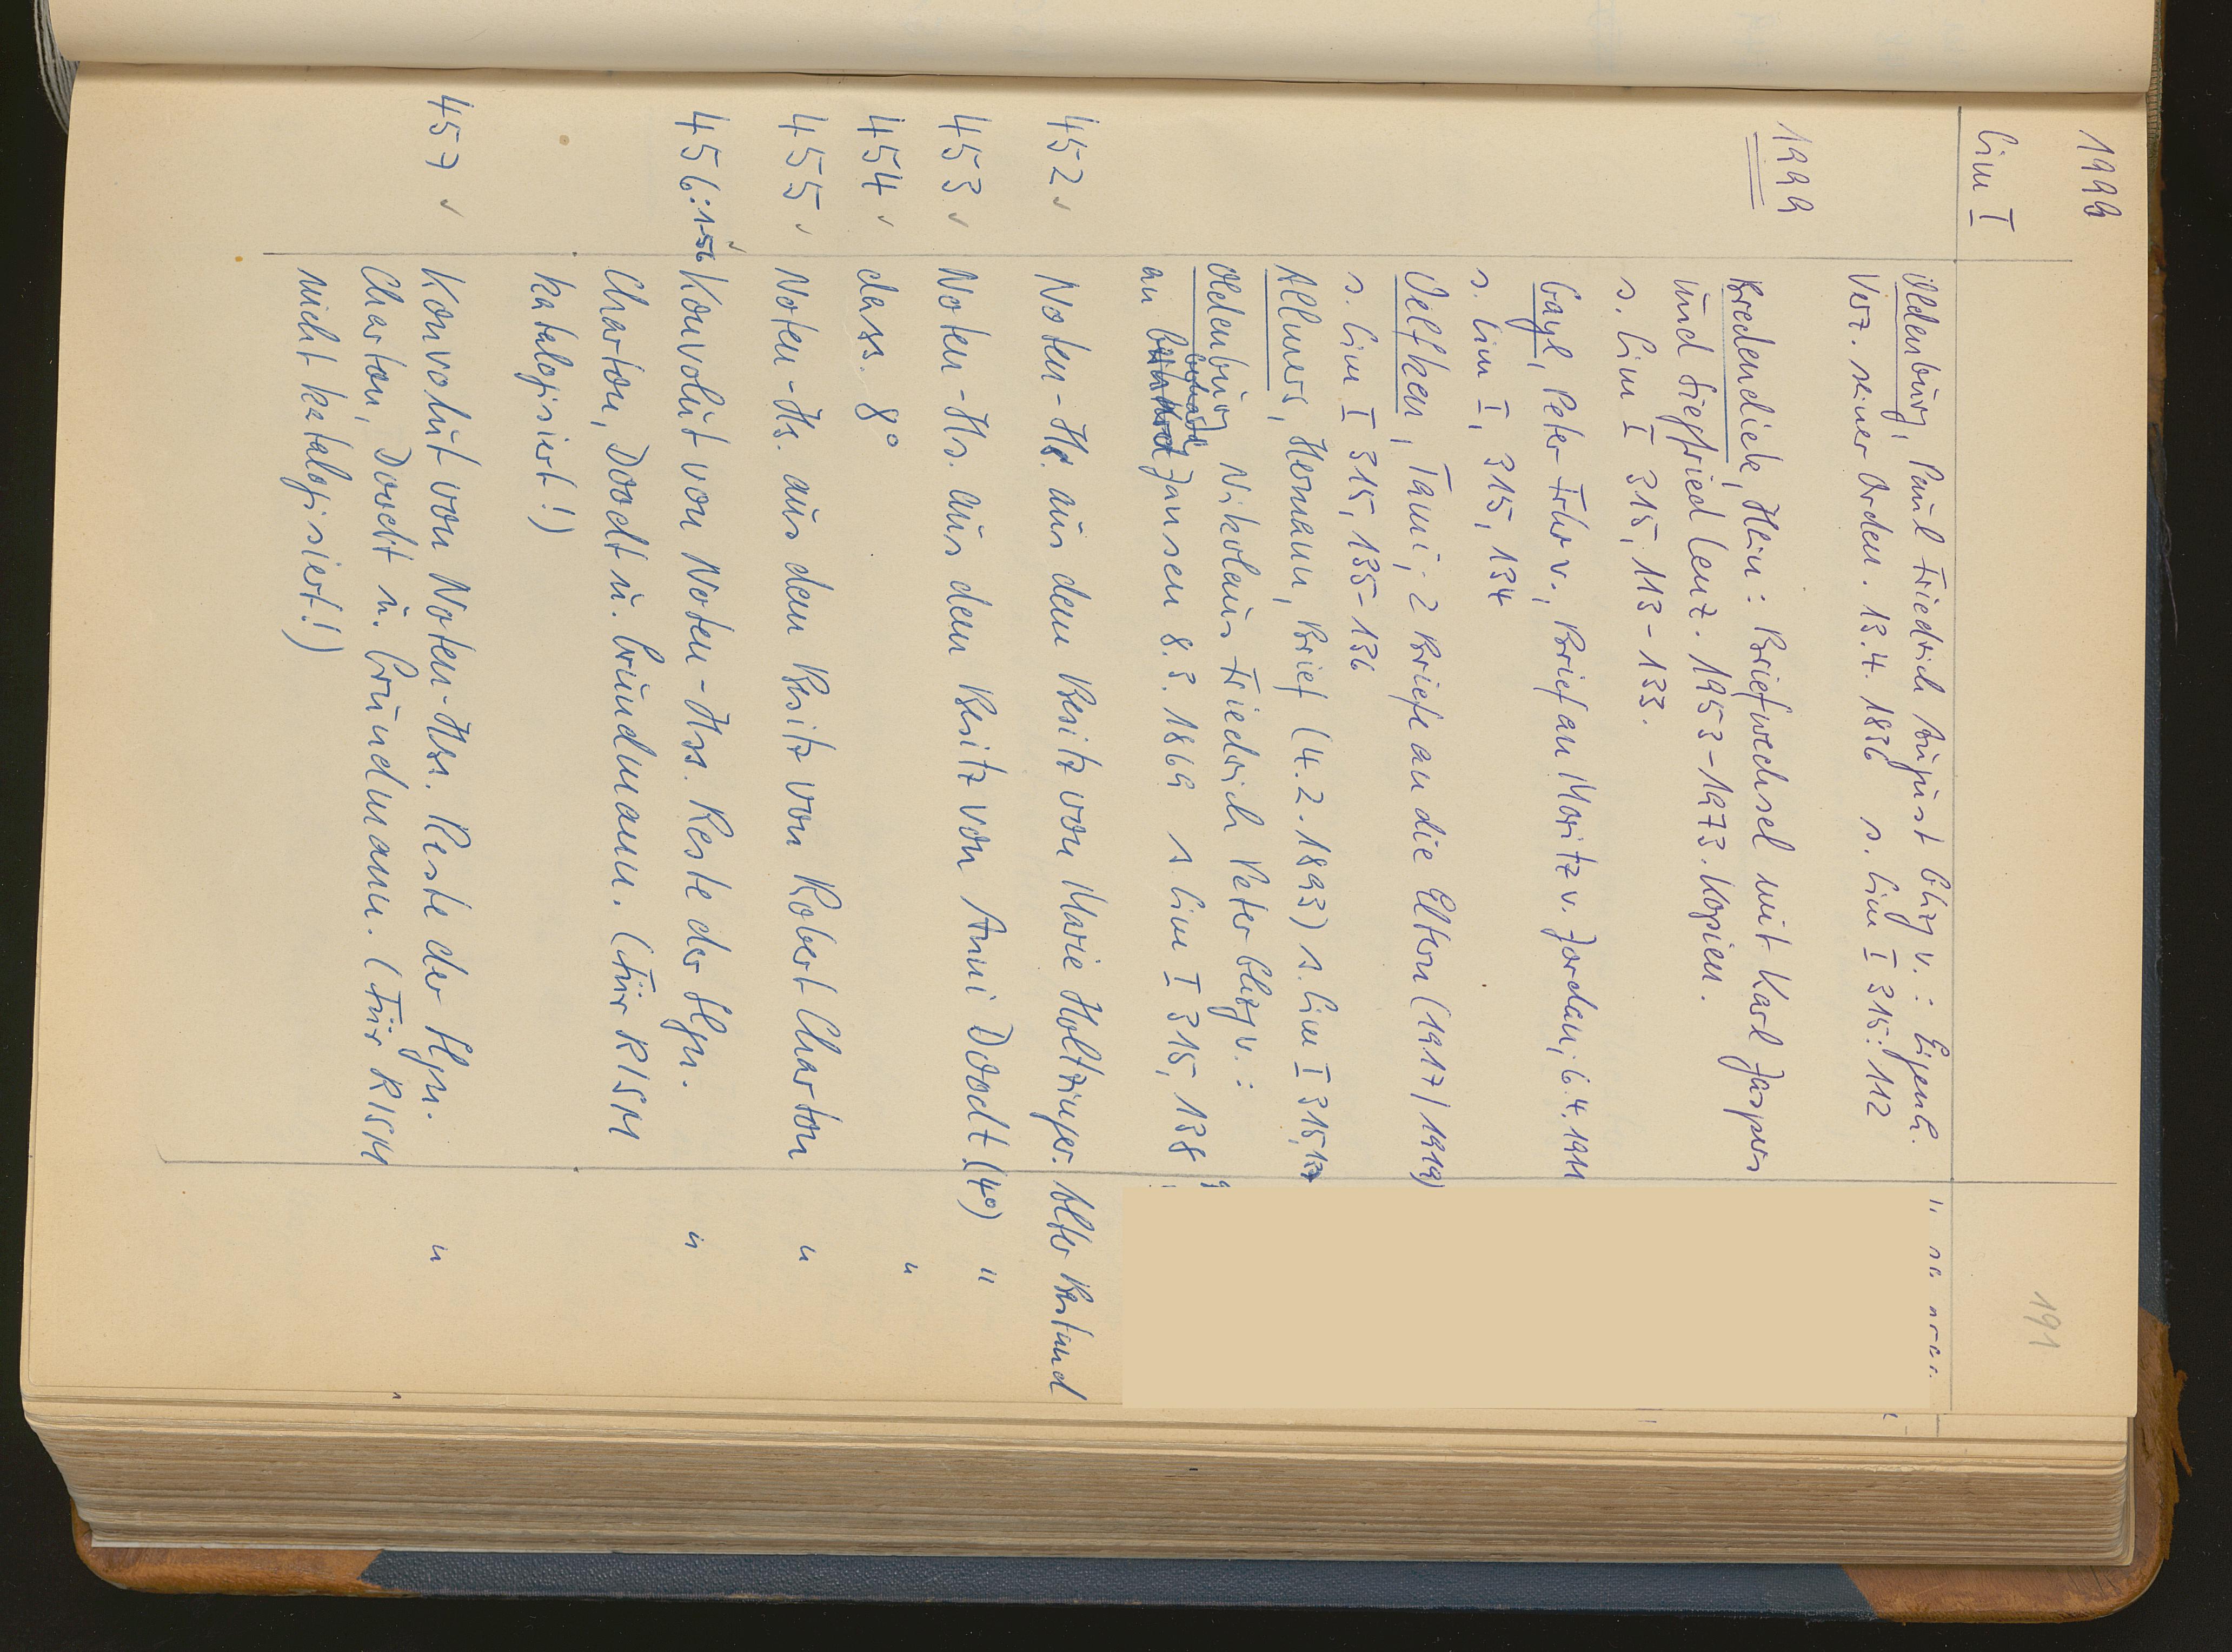 1998
191
Cim I
Oldenburg, Paul Friedrich August Ghzg v.: Eigenh.
Verz. seiner Orden. 13.4.1836 s. Cim I 315: 112
1999
Bredendiek, Hein: Briefwechsel mit Karl Jaspers
und Siegfried Lenz. 1953-1973. Kopien.
s. Cim I 315, 113-133.
Gayl, Peter Frhr v., Brief an Moritz v. Jordan; 6.4.1911
s. Cim I, 315, 134
Oelfken, Tami; 2 Briefe an die Eltern (1917/1919)
s. Cim I 315, 135-136
Allmers, Hermann, Brief (4.2.1893) s. Cim I 315, 137
Oldenburg, Nikolaus Friedrich Peter Ghzg v.:
an Jansen 8.3.1869 s. Cim I 315, 138
452 ✓ Noten-Hs. aus dem Besitz von Marie Holtzinger. Alter Bestand
453 ✓ Noten-Hs. aus dem Besitz von Anni Doodt (4°) "
454 ✓ dass. 8° "
455 ✓ Noten-Hs. aus dem Besitz von Robert Charton "
456:1-56 ✓ Konvolut von Noten-Hss. Reste der Slgn. "
Charton, Doodt u. Grundmann. (Für RISM
katalogisiert!)
457 ✓ Konvolut von Noten-Hss. Reste der Slgn. "
Charton, Doodt u. Grundmann. (Für RISM
nicht katalogisiert!)